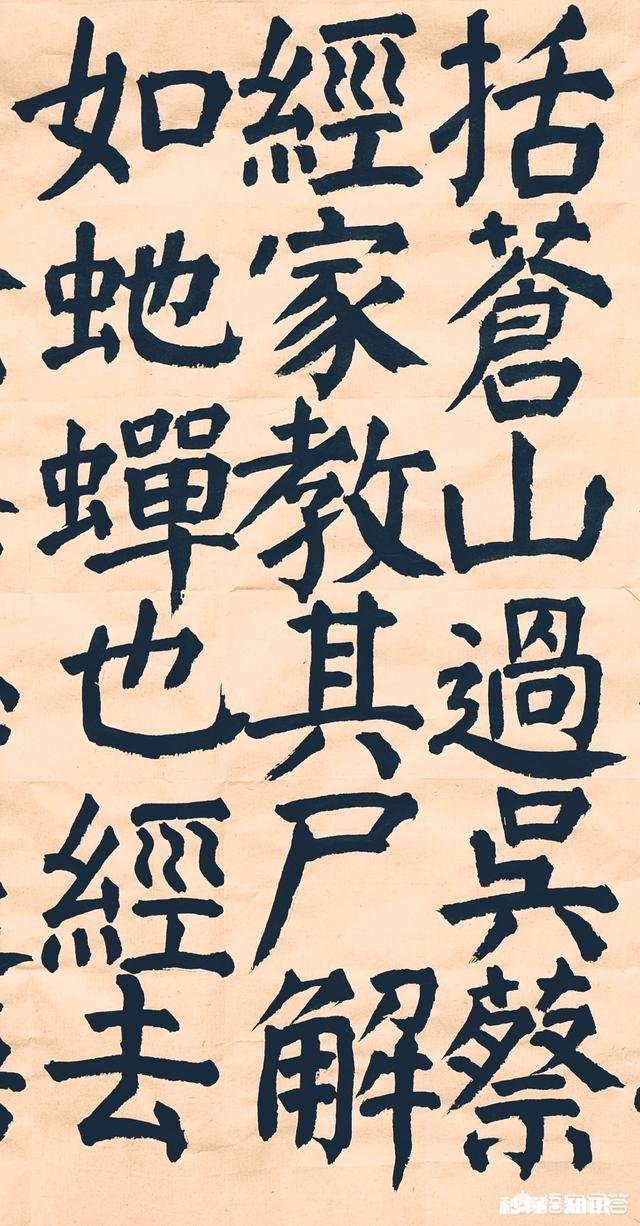 括蒼山過吳蔡
經家教其尸解
如虵蟬也經去